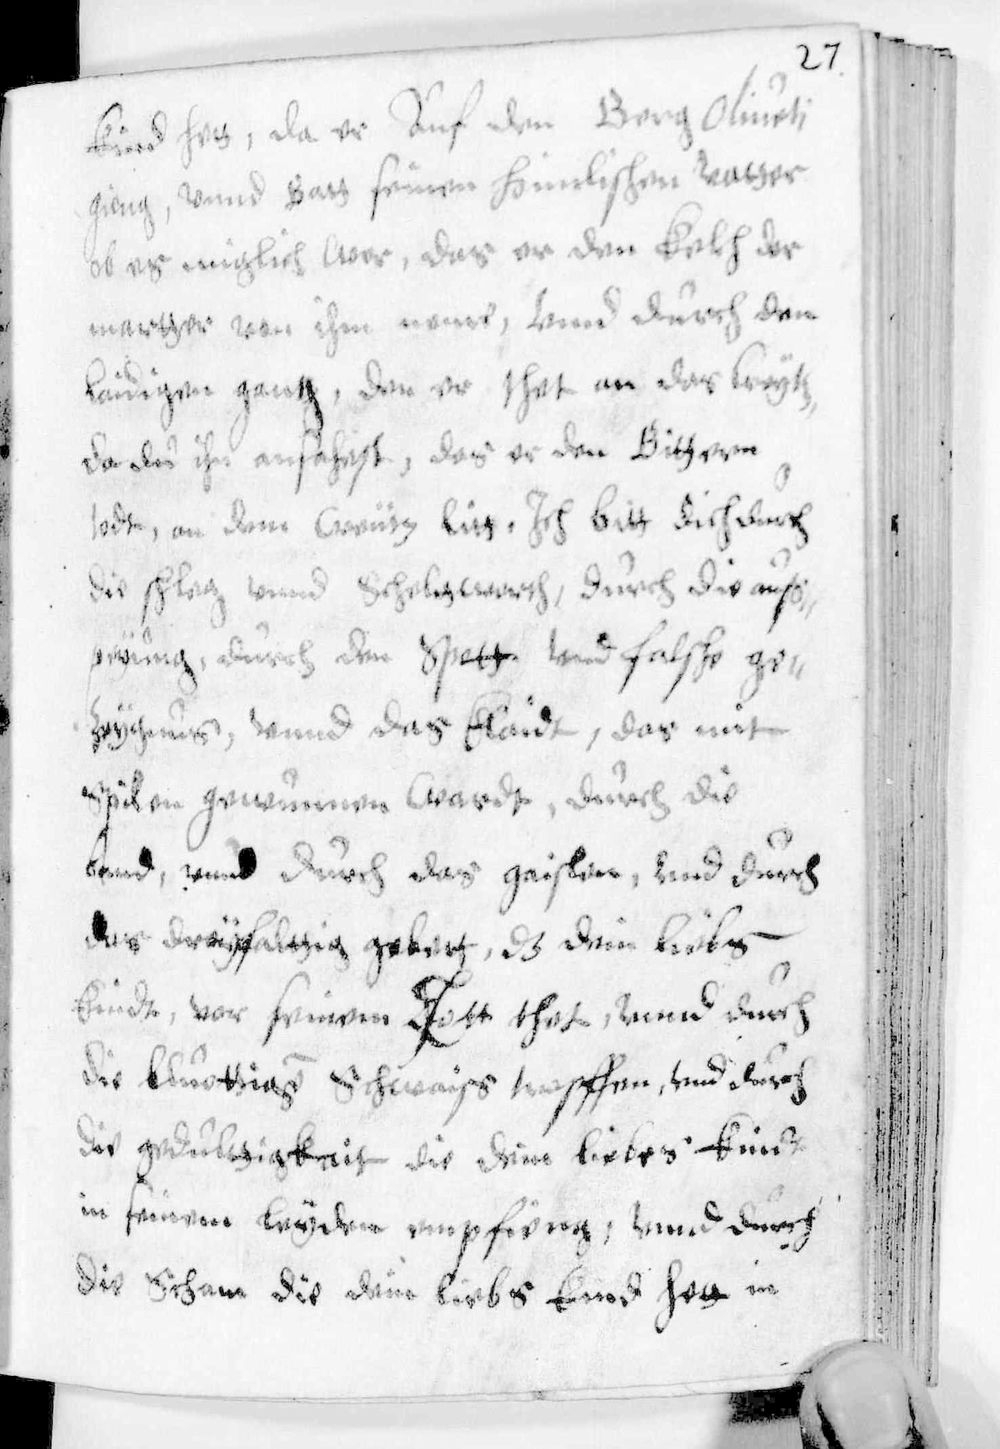 27.
kind hett, da er Auf den Berg Oliueti
gieng, vnnd Batt seinen himlischen Vatter
ob es miglich wer, das er den kelch der
martter von ihm neme, vnnd durch den
laidigen gang, den er thet an das kreytz,
da du ihn ansahest, das er den Bittern
todt, an dem Creütz litt. Ich bitt dich durch
die schleg vnnd Scheltwortt, durch die auß„
speyung, durch den Spott vnd falsche ge„
zeygnus, vnnd das Klaidt, das mit
Spilen gewunnen wardt, durch die
band, vnnd durch das gaislen, vnd durch
das dreyfaltig gebett, dz dein liebs
kindt, vor seinem Tott thet, vnnd durch
die bluottigs Schwaiss tropffen, vnd durch
die gedultigkait die dein liebes kindt
in seinem leyden empfieng, vnnd durch
die Scham die dein liebs kind hett in